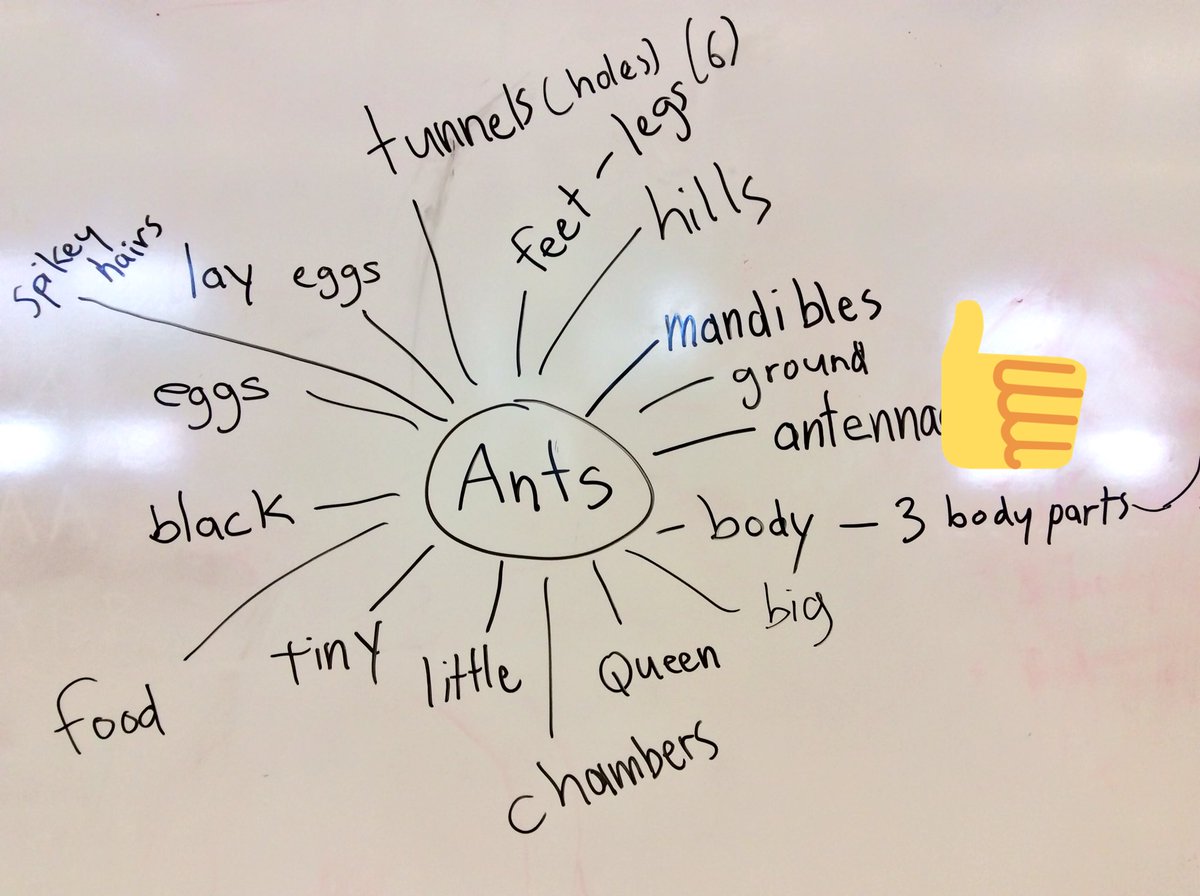 tunnels (holes)
feet - legs (6)
hills
spikey
hairs
lay eggs
mandibles
ground
eggs
antenna
Ants
black
body - 3 body parts
big
tiny
little
Queen
food
chambers